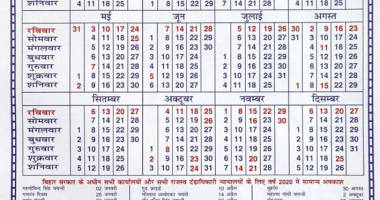 शनिवार 4 11 18 25 1 8 15 22 29 7 14 21 28 4 11 18 25
मई जून जुलाई अगस्त
रविवार 31 3 10 17 24 7 14 21 28 5 12 19 26 30 2 9 16 23
सोमवार 4 11 18 25 1 8 15 22 29 6 13 20 27 31 3 10 17 24
मंगलवार 5 12 19 26 2 9 16 23 30 7 14 21 28 4 11 18 25
बुधवार 6 13 20 27 3 10 17 24 1 8 15 22 29 5 12 19 26
गुरूवार 7 14 21 28 4 11 18 25 2 9 16 23 30 6 13 20 27
शुक्रवार 1 8 15 22 29 5 12 19 26 3 10 17 24 31 7 14 21 28
शनिवार 2 9 16 23 30 6 13 20 27 4 11 18 25 1 8 15 22 29
सितम्बर अक्टूबर नवम्बर दिसम्बर
रविवार 6 13 20 27 4 11 18 25 1 8 15 22 29 6 13 20 27
सोमवार 7 14 21 28 5 12 19 26 2 9 16 23 30 7 14 21 28
मंगलवार 1 8 15 22 29 6 13 20 27 3 10 17 24 1 8 15 22 29
बुधवार 2 9 16 23 30 7 14 21 28 4 11 18 25 2 9 16 23 30
गुरूवार 3 10 17 24 1 8 15 22 29 5 12 19 26 3 10 17 24 31
शुक्रवार 4 11 18 25 2 9 16 23 30 6 13 20 27 4 11 18 25
शनिवार 5 12 19 26 3 10 17 24 31 7 14 21 28 5 12 19 26
बिहार सरकार के अधीन सभी कार्यालयों और सभी राजस्व दंडाधिकारी न्यायालयों के लिए वर्ष 2020 में सामान्य अवकाश